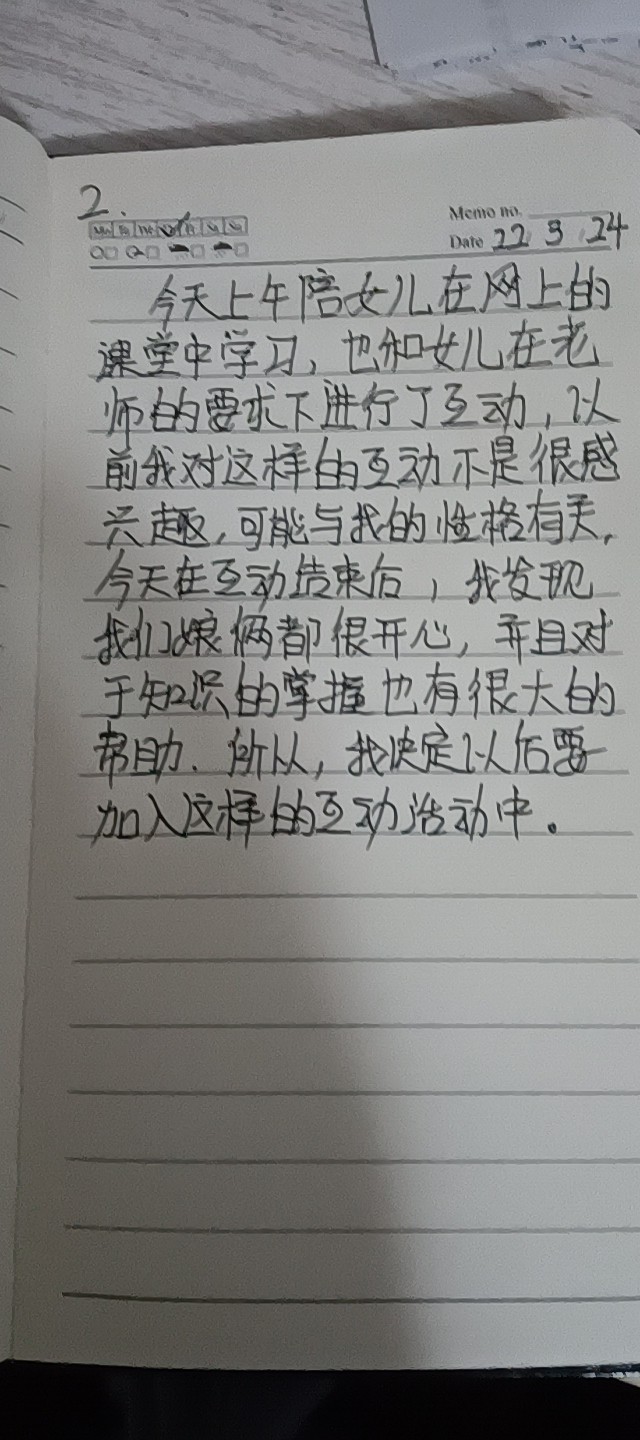 2.
Memo no.
Date 22 3 24
今天上午陪女儿在网上的
课堂中学习，也和女儿在老
师的要求下进行了互动，以
前我对这样的互动不是很感
兴趣，可能与我的性格有关，
今天在互动结束后，我发现
我们娘俩都很开心，并且对
于知识的掌握也有很大的
帮助．所以，我决定以后要
加入这样的互动活动中。